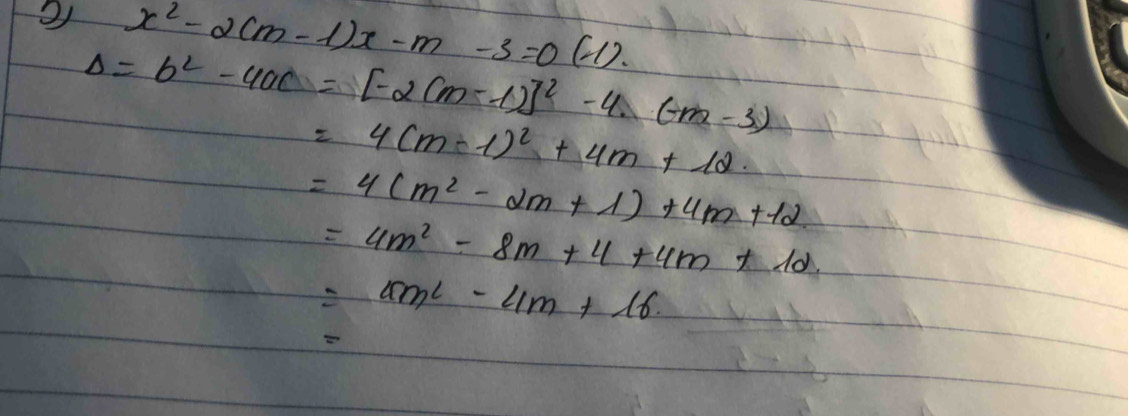 2) x² - 2(m - 1)x - m - 3 = 0 (1).
Δ = b² - 4ac = [-2(m - 1)]² - 4. (-m - 3)
= 4(m - 1)² + 4m + 12.
= 4(m² - 2m + 1) + 4m + 12.
= 4m² - 8m + 4 + 4m + 12.
= 4m² - 4m + 16.
=